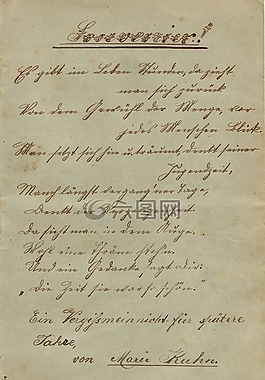 Souvenier!
Es gibt im Leben Stunden, da zieht
man sich zurück
Von dem Gewühl der Menge, vor
jedes Menschen Blick.
Man setzt sich hin u. träumt, denkt seiner
Jugendzeit,
Manch längst vergang'ner Tage,
Denkt
Da sieht man in dem Auge
Wohl eine Thrän' steh'n.
Und ein Gedanke sagt uns:
„Die Zeit sie war so schön."
Ein Vergißmeinnicht für spätere
Jahre,
von Marie Kuhn.